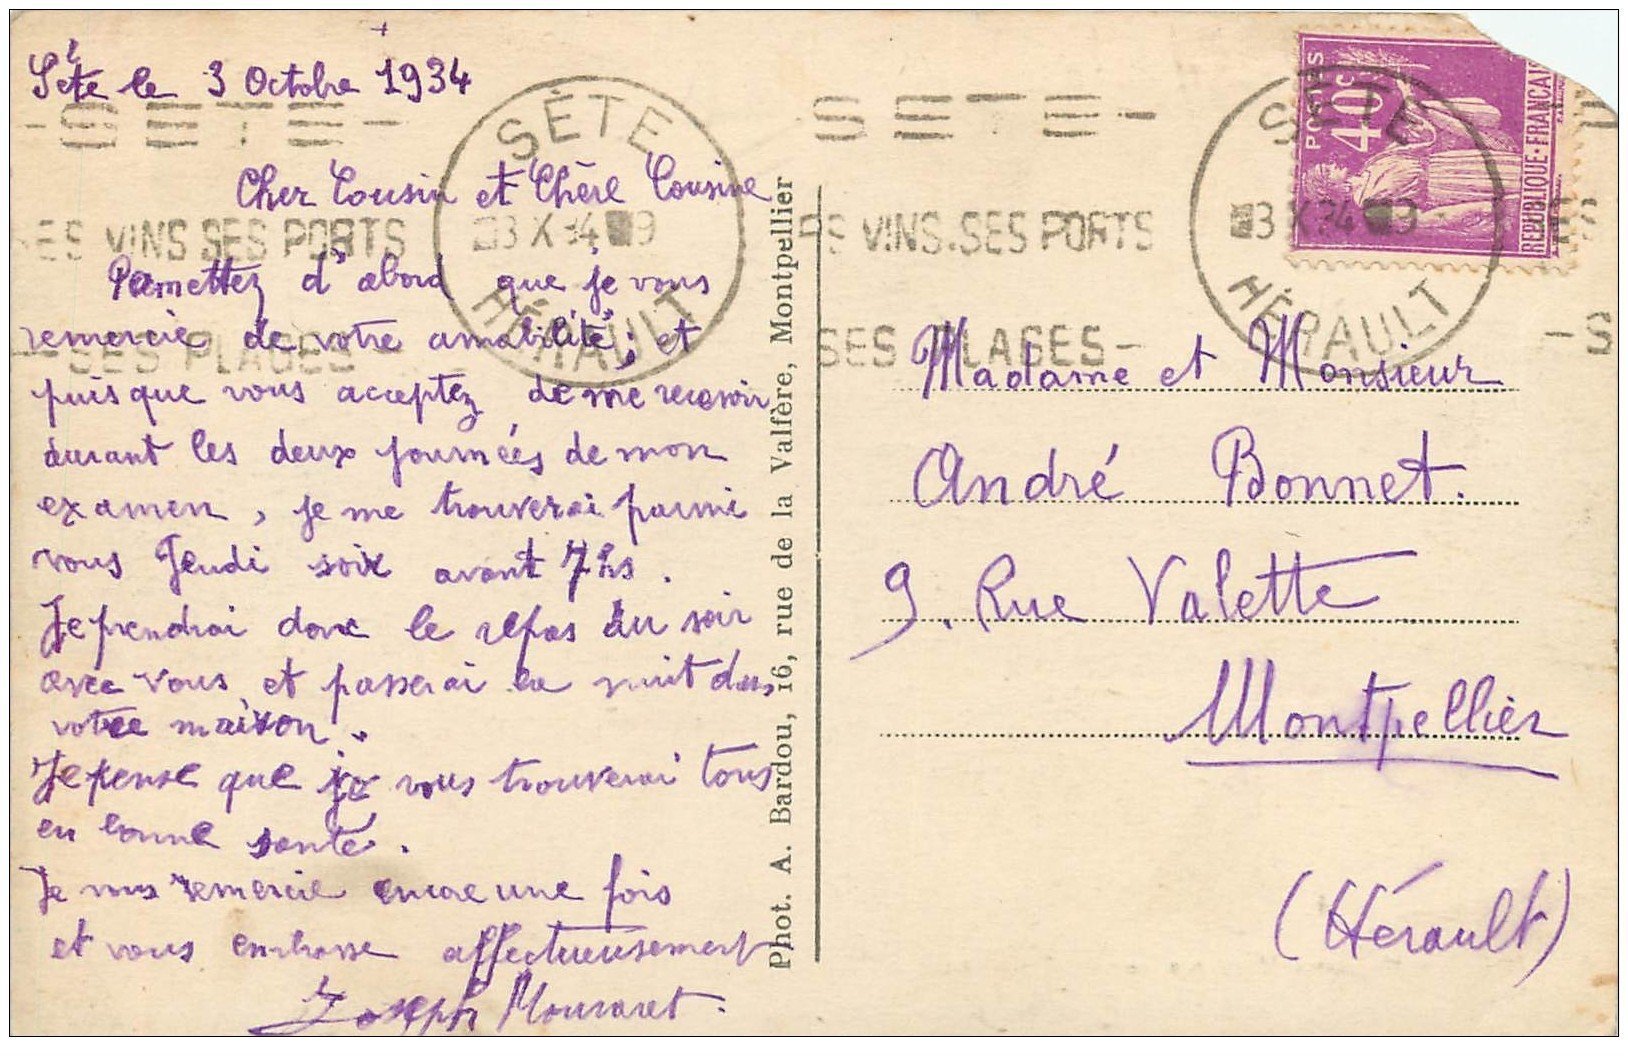 Sète le 3 Octobre 1934
Cher Cousin et Chère Cousine
Permettez d'abord que je vous
remercie de votre amabilité, et
puisque vous acceptez de me recevoir
durant les deux journées de mon
examen, je me trouverai parmi
vous Jeudi soir avant 7 hs.
Je prendrai donc le repas du soir
avec vous et passerai la nuit dans
votre maison.
Je pense que je vous trouverai tous
en bonne santé.
Je vous remercie encore une fois
et vous embrasse affectueusement
Joseph
Phot. A. Bardou, 16, rue de la Valfère, Montpellier
SÈTE
3 X 34 9
HÉRAULT
- SETE -
SES VINS SES PORTS
SES PLAGES -
- SETE -
SES VINS.SES PORTS
SES PLAGES -
SETE
3 X 34 9
HÉRAULT
- S
POSTES
40c
REPUBLIQUE·FRANÇAISE
Madame et Monsieur
André Bonnet.
9. Rue Valette
Montpellier
(Hérault)